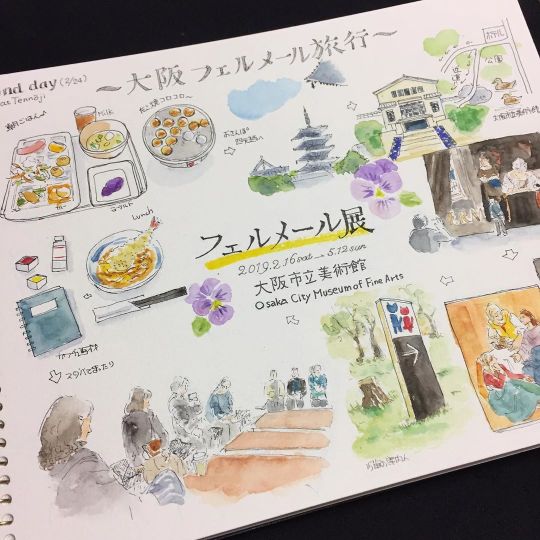 nd day (2/24)
～大阪フェルメール旅行～
as Tennoji
朝ごはん♪
Milk
たこ焼コロコロ～
ヨーグルト
おさんぽ
四天王寺
ホテル
公園
大阪市立美術館
Lunch
フェルメール展
2019.2.16sat→5.12sun
大阪市立美術館
Osaka City Museum of Fine Arts
スタバでまったり